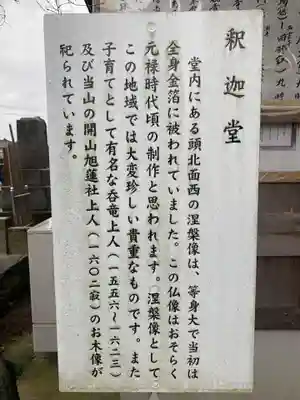 釈迦堂
堂内にある頭北面西の涅槃像は、等身大で当初は
全身金箔に被われていました。この仏像はおそらく
元禄時代頃の制作と思われます。涅槃像として
この地域では大変珍しい貴重なものです。また
子育てとして有名な呑竜上人(一五五六~一六二三)
及び当山の開山旭蓮社上人(一六〇二寂)のお木像が
祀られています。